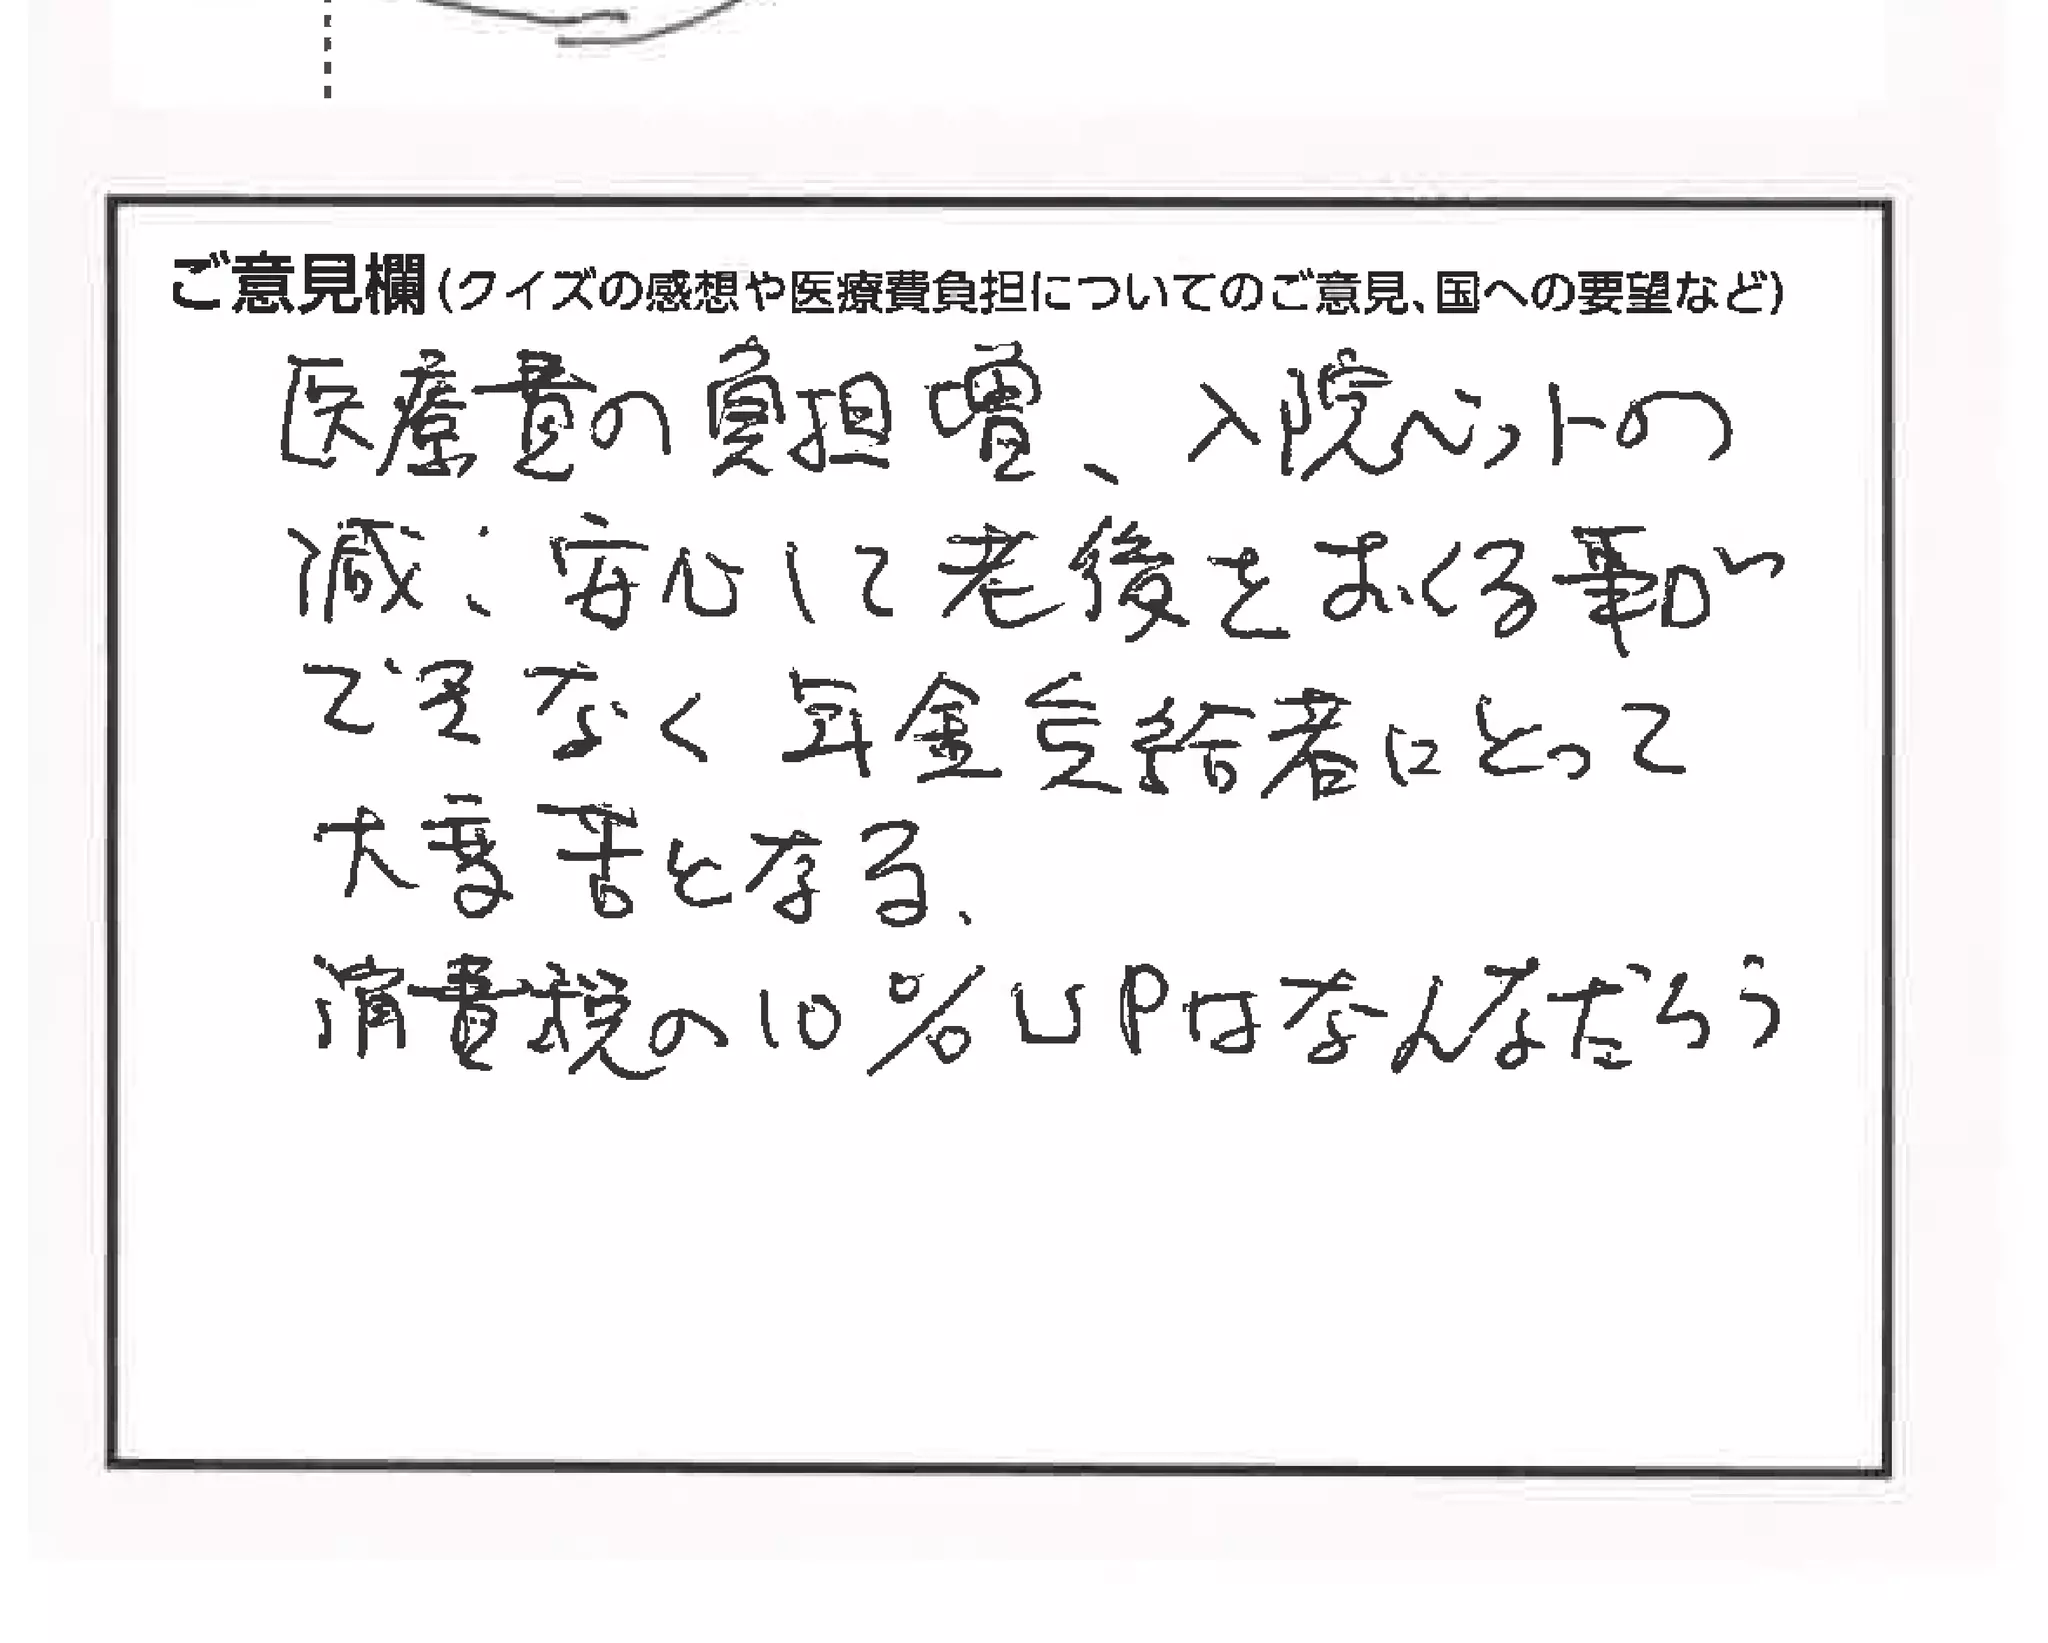 ご意見欄(クイズの感想や医療費負担についてのご意見、国への要望など)
医療費の負担増、入院ベットの
減：安心して老後をおくる事が
できなく年金受給者にとって
大変苦となる、
消費税の10%UPはなんなだろう